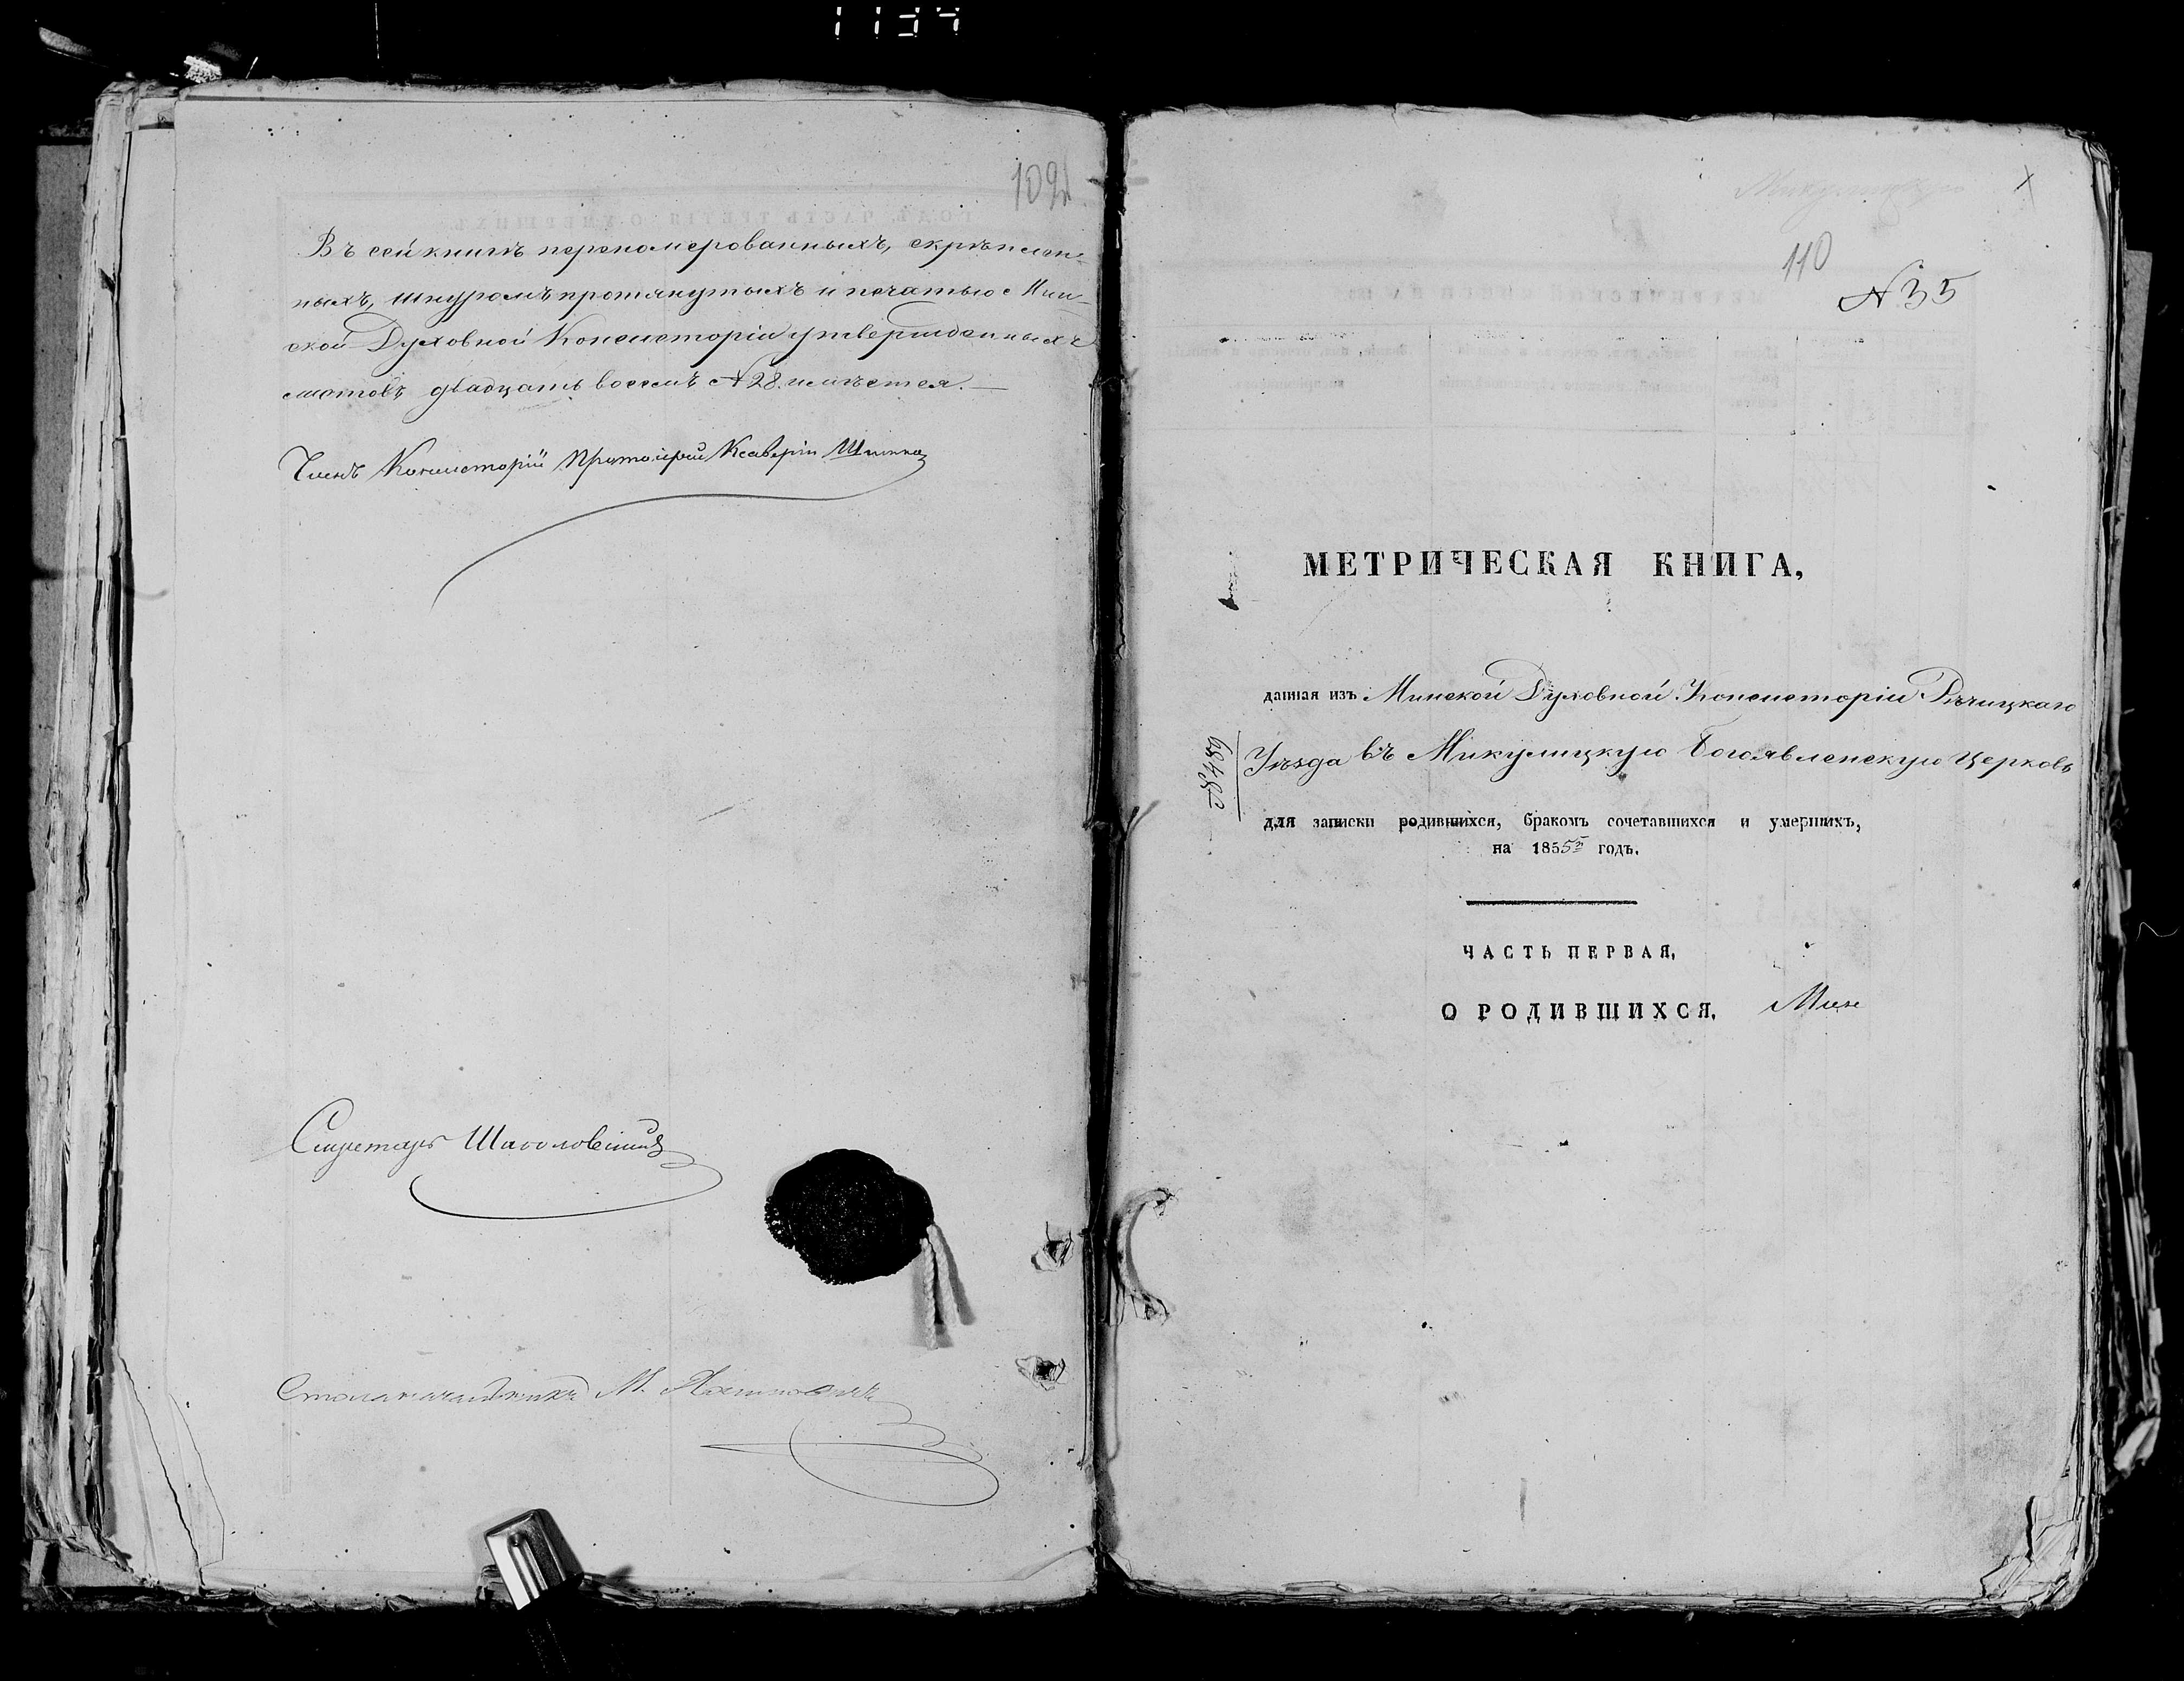 109
Въ сей книгѣ перенумерованныхъ, скрѣплен-
ныхъ, шнуромъ протянутыхъ и печатью Мин-
ской Духовной Консисторіи утвержденныхъ
листовъ двадцать восемь №28. имѣется.
Членъ Консисторіи Протоіерей Ксаверій
Секретарь
Столоначальникъ М.
110
№35
МЕТРИЧЕСКАЯ КНИГА,
данная изъ Минской Духовной Консисторіи Рѣчицкаго
Уѣзда въ Микулицкую Богоявленскую Церковь
для записки родившихся, бракомъ сочетавшихся и умершихъ,
на 1855й годъ.
ЧАСТЬ ПЕРВАЯ,
О РОДИВШИХСЯ.
Мин